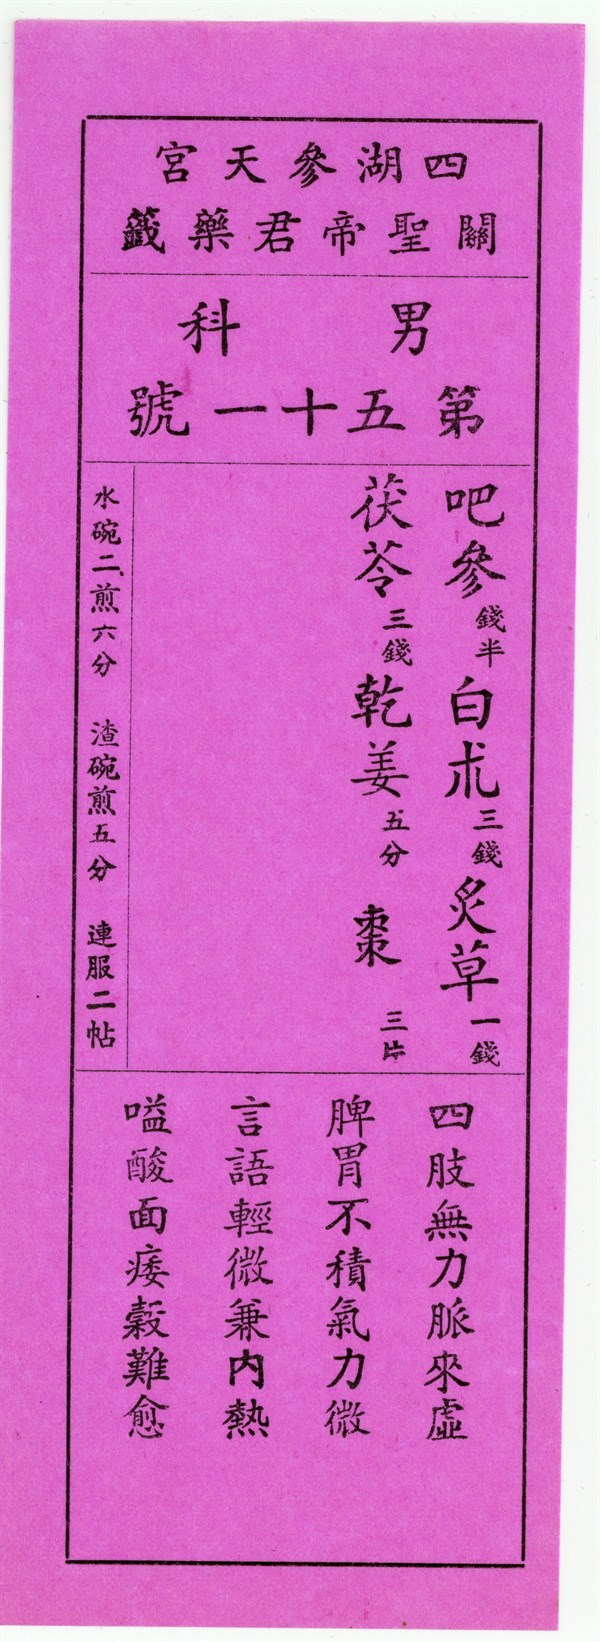 四湖參天宮
關聖帝君藥籤
男科
第五十一號
吧參錢半白朮三錢炙草一錢
茯苓三錢乾姜五分棗三片
水碗二煎六分 渣碗煎五分 連服二帖
四肢無力脈來虛
脾胃不積氣力微
言語輕微兼內熱
嗌酸面痿穀難愈